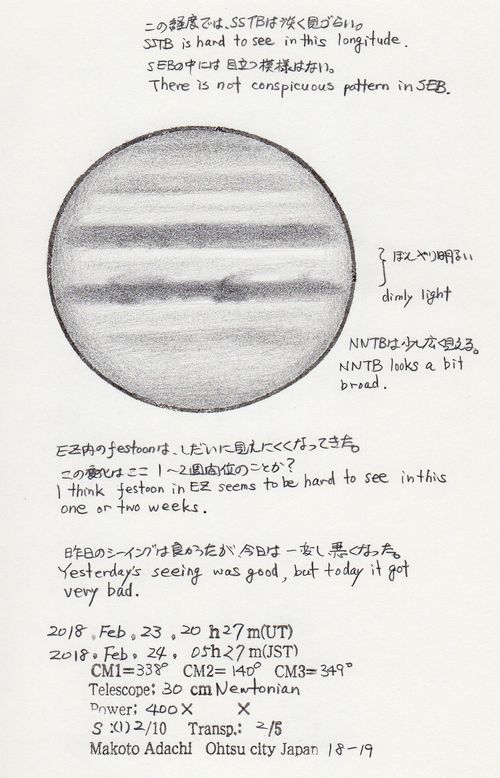 この経度では、SSTBは淡く見づらい。
SSTB is hard to see in this longitude.
SEBの中には目立つ模様はない。
There is not conspicuous pattern in SEB.
ぼんやり明るい
dimly light
NNTBは少し広く見える。
NNTB looks a bit
broad.
EZ内のfestoonは、しだいに見えにくくなってきた。
この変化はここ1～2週間位のことか?
I think festoon in EZ seems to be hard to see in this
one or two weeks.
昨日のシーイングは良かったが今日は一変し悪くなった。
Yesterday's seeing was good, but today it got
very bad.
2018. Feb. 23. 20 h27m(UT)
2018. Feb. 24. 05h27m(JST)
CM1=338° CM2=140° CM3=349°
Telescope: 30 cm Newtonian
Power: 400× ×
S:(1)2/10 Transp.: 2/5
Makoto Adachi Ohtsu city Japan 18-19